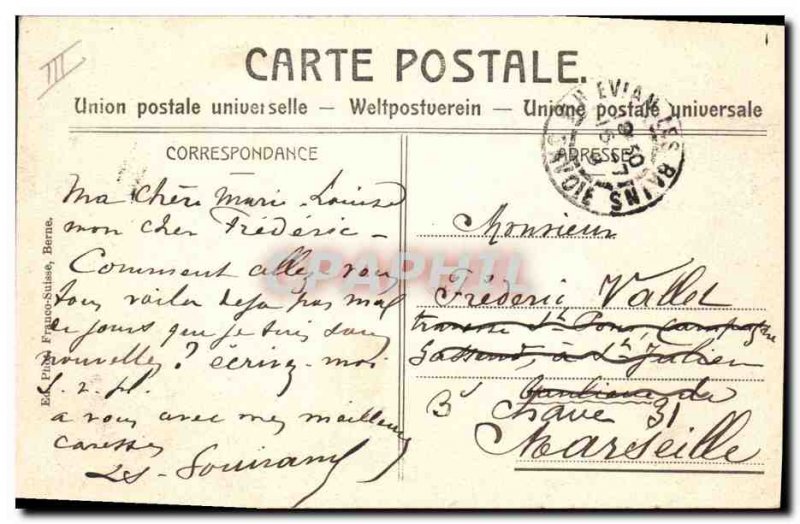 III
CARTE POSTALE.
Union postale universelle — Weltpostverein — Unione postale universale
EVIAN LES BAINS
CORRESPONDANCE
ADRESSE
Ma chère Marie-Louise
mon cher Frédéric —
Comment allez vous
tous voila deja pas mal
de jours que je suis sans
nouvelles? écrivez-moi
S. v. pl.
a vous avec mes meilleures
caresses
Ed. Phot. Franco-Suisse, Berne.
Monsieur
Fréderic Vallet
traverse St Pons, Campagne
Gassend, à St Julien
banlieue de
Bd Chave 31
Marseille
CPAPHIL